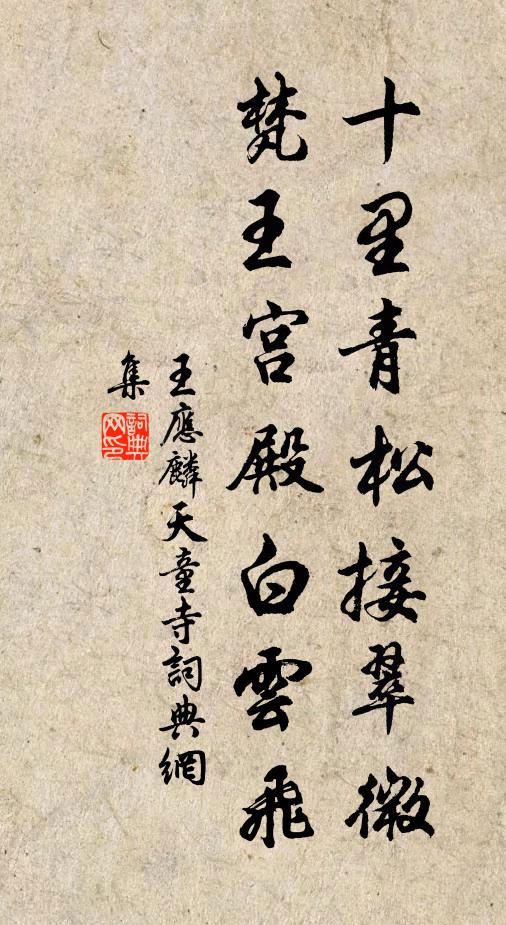 十里青松接翠微
梵王宮殿白雲飛
王應麟天童寺詞典網
集
詞典網印